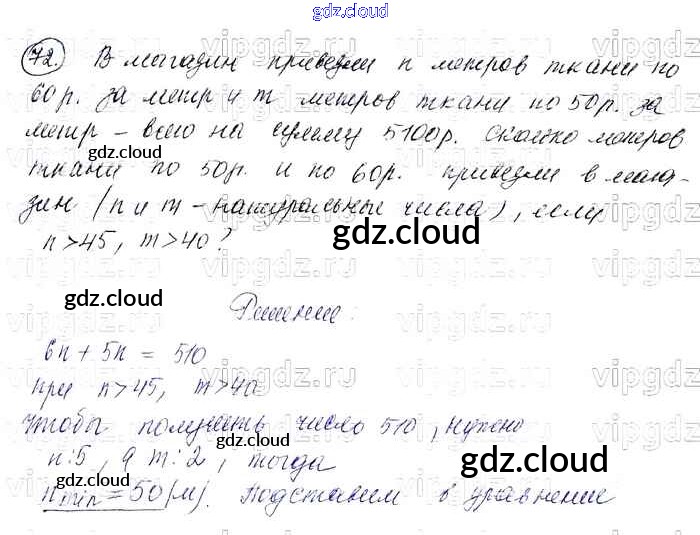 gdz.cloud
72. В магазин привезли n метров ткани по
60р. за метр и m метров ткани по 50р. за
метр – всего на сумму 5100р. Сколько метров
ткани по 50р. и по 60р. привезли в мага-
gdz.cloud
зин (n и m – натуральные числа), если
n>45, m>40?
gdz.cloud
gdz.cloud
Решение:
6n + 5n = 510
при n>45, m>40
gdz.cloud
Чтобы получить число 510, нужно
gdz.cloud
n⋮5, а m⋮2, тогда
gdz.cloud
n min = 50(м). Подставим в уравнение
gdz.cloud